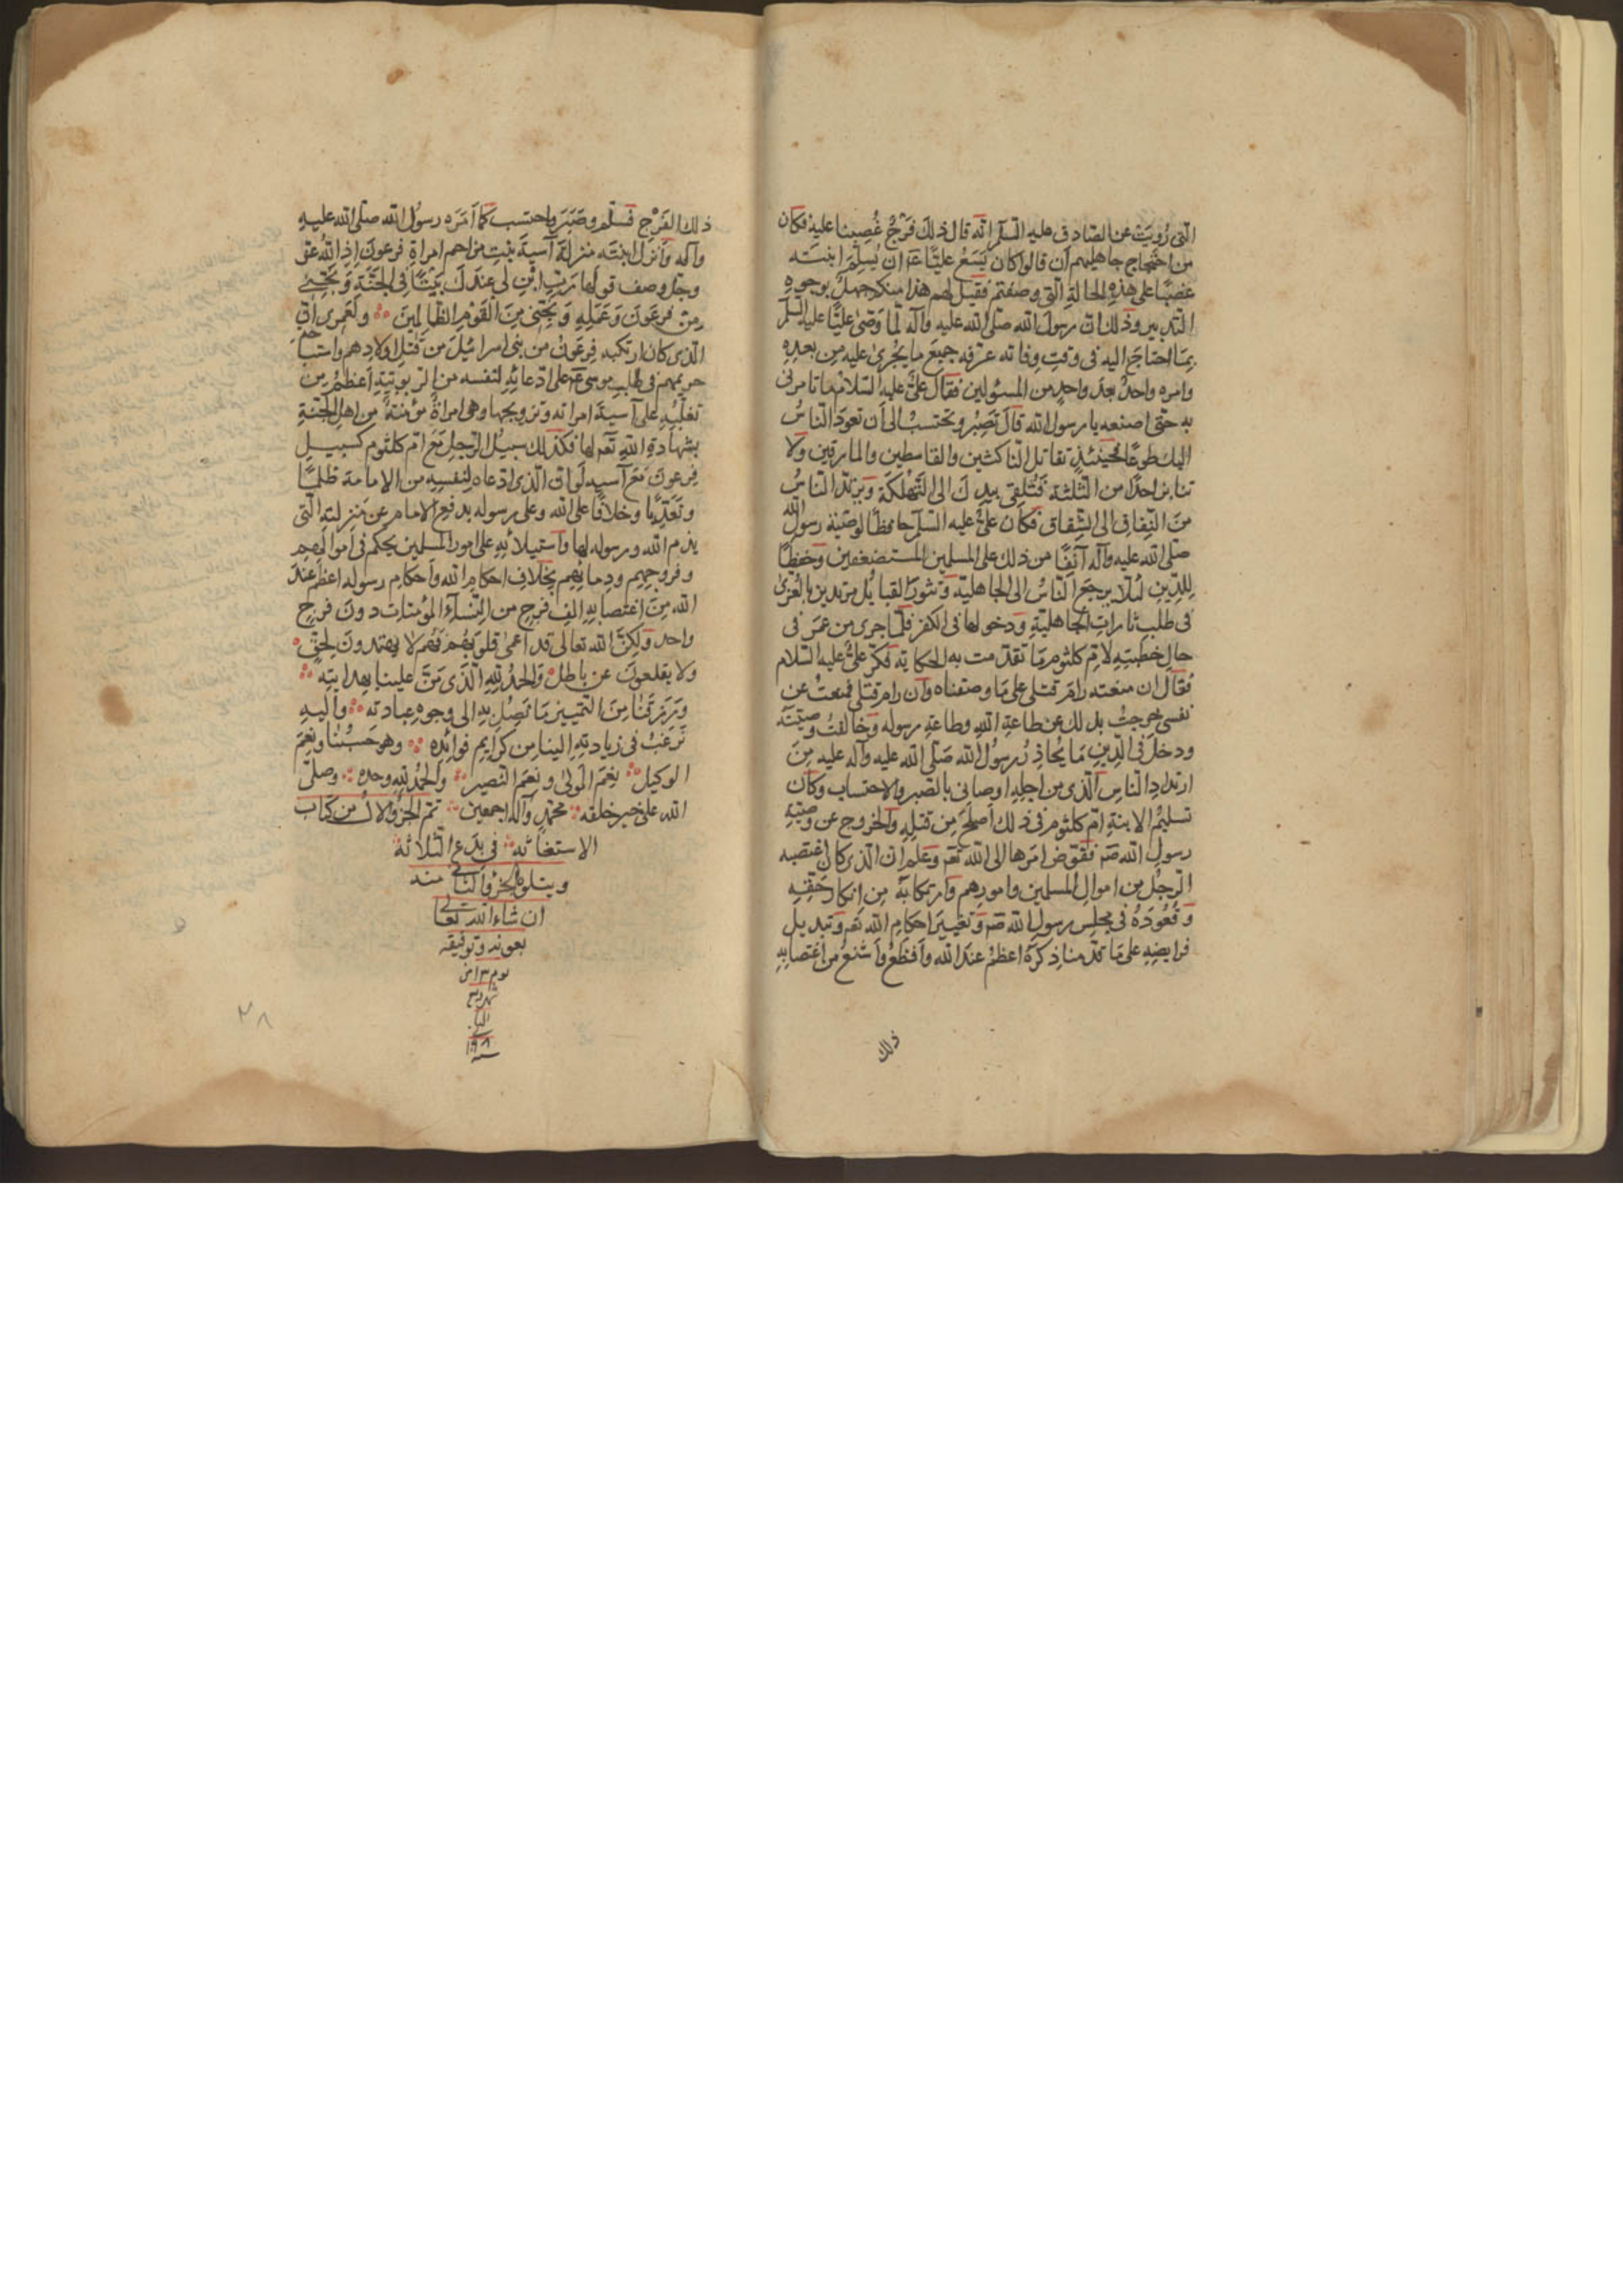 التى رُوِيَتْ عن الصادق عليه السلم انه قال ذلك فَرْجٌ غُصِبنا عليه فكان
من احتجاج جاهليهم اَن قالوا كان يَسَعُ عليًّا عم ان يُسلِّمَ ابنته
غصبًا على هذه الحالة التى وصفتم فقيل لهم هذا منكم جهلٌ بوجوه
التدبير وذلك ان رسول الله صلى الله عليه وآله لما وَصّى عليًّا عليه السلم
بما احتاج اليه فى وقت وفاته عرّفه جميع ما يجرى عليه من بعده
وامره واحدٌ بعد واحدٍ من المستولين فقال علىٌّ عليه السّلام ما تامرنى
به حتى اصنعه يا رسول الله قال تَصْبِرُ وتحتسبُ الى اَن تعودَ الناسُ
اليك طوعًا فحينئذٍ تقاتل الناكثين والقاسطين والمارقين ولا
تنابز احدًا من الثلثة فَتُلقى بيدك الى التَّهْلكَةِ ويرتدّ الناسُ
من النِّفاقِ الى الشِّقاق فكان علىٌّ عليه السلم حافظًا لوصيّة رسول الله
صلى الله عليه وآله من ذلك على المسلمين المستضعفين وحفظًا
للدّينِ لئلا يرجع الناسُ الى الجاهليّة وتثور القبائل مريدين
فى طلب ثارات الجاهليّةِ ودخولها فى الكفر فلمّا جرى من عمر فى
حال خطبتِهِ لاُمّ كلثوم ما تقدمت به الحكاية فكّر علىٌّ عليه السّلام
فقال ان منعته رامَ قتلى على ما وصفناه وان رام قتلى فمنعتُ عن
نفسى خرجتُ بذلك عن طاعةِ اللهِ وطاعةِ رسوله وخالفتُ وصيّتَه
ودخل فى الدِّين ما يُحاذِرُ رسولُ الله صلى الله عليه وآله عليه مِنَ
ارتدادِ الناس الّذى من اجلِه اوصانى بالصّبر والاحتساب وكان
تسليمُ الابنة امّ كلثوم فى ذلك اَصلحَ مِن قتله والخروج عن وصيّةِ
رسول الله صَ ففوّض امرها الى الله تعَ وعلم ان الذى كان اغتصبه
الرّجلُ من اموال المسلمين وامورهم وارتكابه مِن انكارِ حَقّهِ
وقُعُودَهُ فى مجلس رسول الله صَ وتغييرَ احكام الله تعَ وتبديل
فرايضِهِ على ما قدّمنا ذكرَه اعظمُ عند الله واَفظعُ واَشنعُ من اغتصابِهِ
ذلك
ذلك الفَرْجِ فسلّم وصَبَرَ واحتسب كما اَمَرَه رسولُ الله صلى الله عليه
وآله واَنزل ابنتَه منزلةَ آسيةَ بنتِ مزاحم امراةِ فرعونَ اِذِ اللهُ عزّ
وجلّ وصف قولها رَبِّ ابْنِ لى عِندَكَ بَيْتًا فى الجَنّةِ وَ نَجِّنى
مِن فِرعَونَ وَعَمَلِهِ وَ نَجِّنى مِنَ الْقَوْمِ الظّالِمينَ ولَعمرى انّ
الّذى كان ارتكبه فِرعَونُ من بنى اسرائيلَ من قتلِ اولادهم واستباحة
حريمهم فى طلبِ موسى عَم على ادّعائِهِ لنفسه من الرّبوبيّةِ اَعظمُ من
تغلّبِهِ على آسيةَ امراته وتزويجها وهى امراةٌ مؤمنةٌ من اهل الجنّةِ
بشهادةِ اللهِ تعَ لها فكذلك سبيلُ الرّجلِ مَعَ امّ كلثوم كسبيلِ
فرعونَ مَعَ آسيه لَوانّ الّذى ادّعاه لنفسِهِ من الامامة ظلمًا
وتَعَدِّيًا وخلافًا على الله وعلى رسوله بدفعِ الامام عن منزلتهِ الّتى
الله ورسوله لها واستيلائِهِ على امور المسلمين يحكم فى اموالهم
وفروجِهم ودمائِهم بخلافِ احكامِ الله واَحكامِ رسوله اعظمُ عند
الله مِن اغتصابِهِ اَلف فرجٍ من النّسآءِ المؤمنات دون فرجٍ
واحد ولكنَّ الله تعالى قد اعمى قلوبَهُم فَهُم لا يهتدون لِحقّ
ولا يقلعون عن باطل والحمدُ للهِ الّذى مَنَّ علينا بهدايتِه
ورَزقنا مِنَ التّمييز ما نَصِلُ بِهِ الى وجوهِ عبادته واليه
نَرغبُ فى زيادتِهِ الينا من كرايم فوائدِه وهو حَسْبُنا ونِعمَ
الوكيل نِعْمَ المولى ونِعمَ النّصير والحمدُ للهِ وحده وصلّى
الله على خير خلقه محمّد وآله اجمعين تتم الجزؤ الاوّل من كتاب
الاستغاثه فى بدع الثّلاثة
ويتلوه الجزؤ الثانى منه
ان شاء الله تعالى
بعونه وتوفيقه
يوم ٣ من
شهر ربيع
الثانى
سنة
٣٨